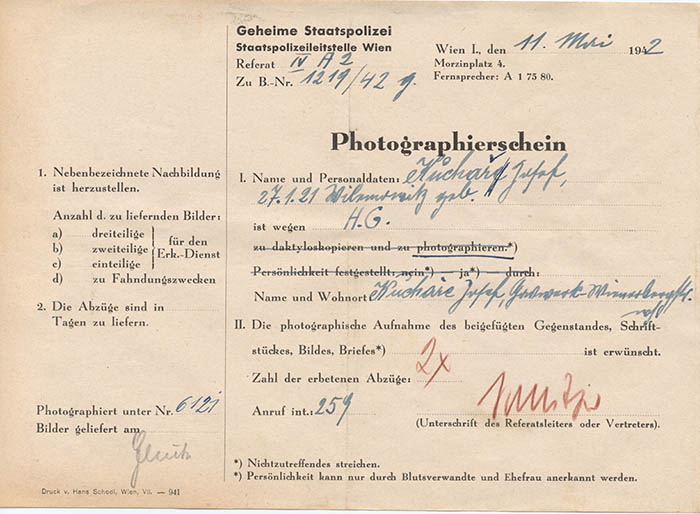 Geheime Staatspolizei
Staatspolizeileitstelle Wien
Referat IV A 2
Zu B.-Nr. 1219/42 g.
Wien I., den 11. Mai 1942
Morzinplatz 4.
Fernsprecher: A 1 75 80.
Photographierschein
1. Nebenbezeichnete Nachbildung
ist herzustellen.
Anzahl d. zu liefernden Bilder:
a) dreiteilige
b) zweiteilige
c) einteilige
für den
Erk.-Dienst
d) zu Fahndungszwecken
2. Die Abzüge sind in
Tagen zu liefern.
Photographiert unter Nr. 6121
Bilder geliefert am
I. Name und Personaldaten: Kucharz Josef,
27.1.21 geb.
ist wegen H.G.
zu daktyloskopieren und zu photographieren.*)
Persönlichkeit festgestellt: nein*) — ja*) — durch:
Name und Wohnort Josef, Gaswerk-
II. Die photographische Aufnahme des beigefügten Gegenstandes, Schrift-
stückes, Bildes, Briefes*) ist erwünscht.
Zahl der erbetenen Abzüge: 2x
Anruf int.: 259
(Unterschrift des Referatsleiters oder Vertreters).
*) Nichtzutreffendes streichen.
*) Persönlichkeit kann nur durch Blutsverwandte und Ehefrau anerkannt werden.
Druck v. Hans Schodl, Wien, VII. — 941